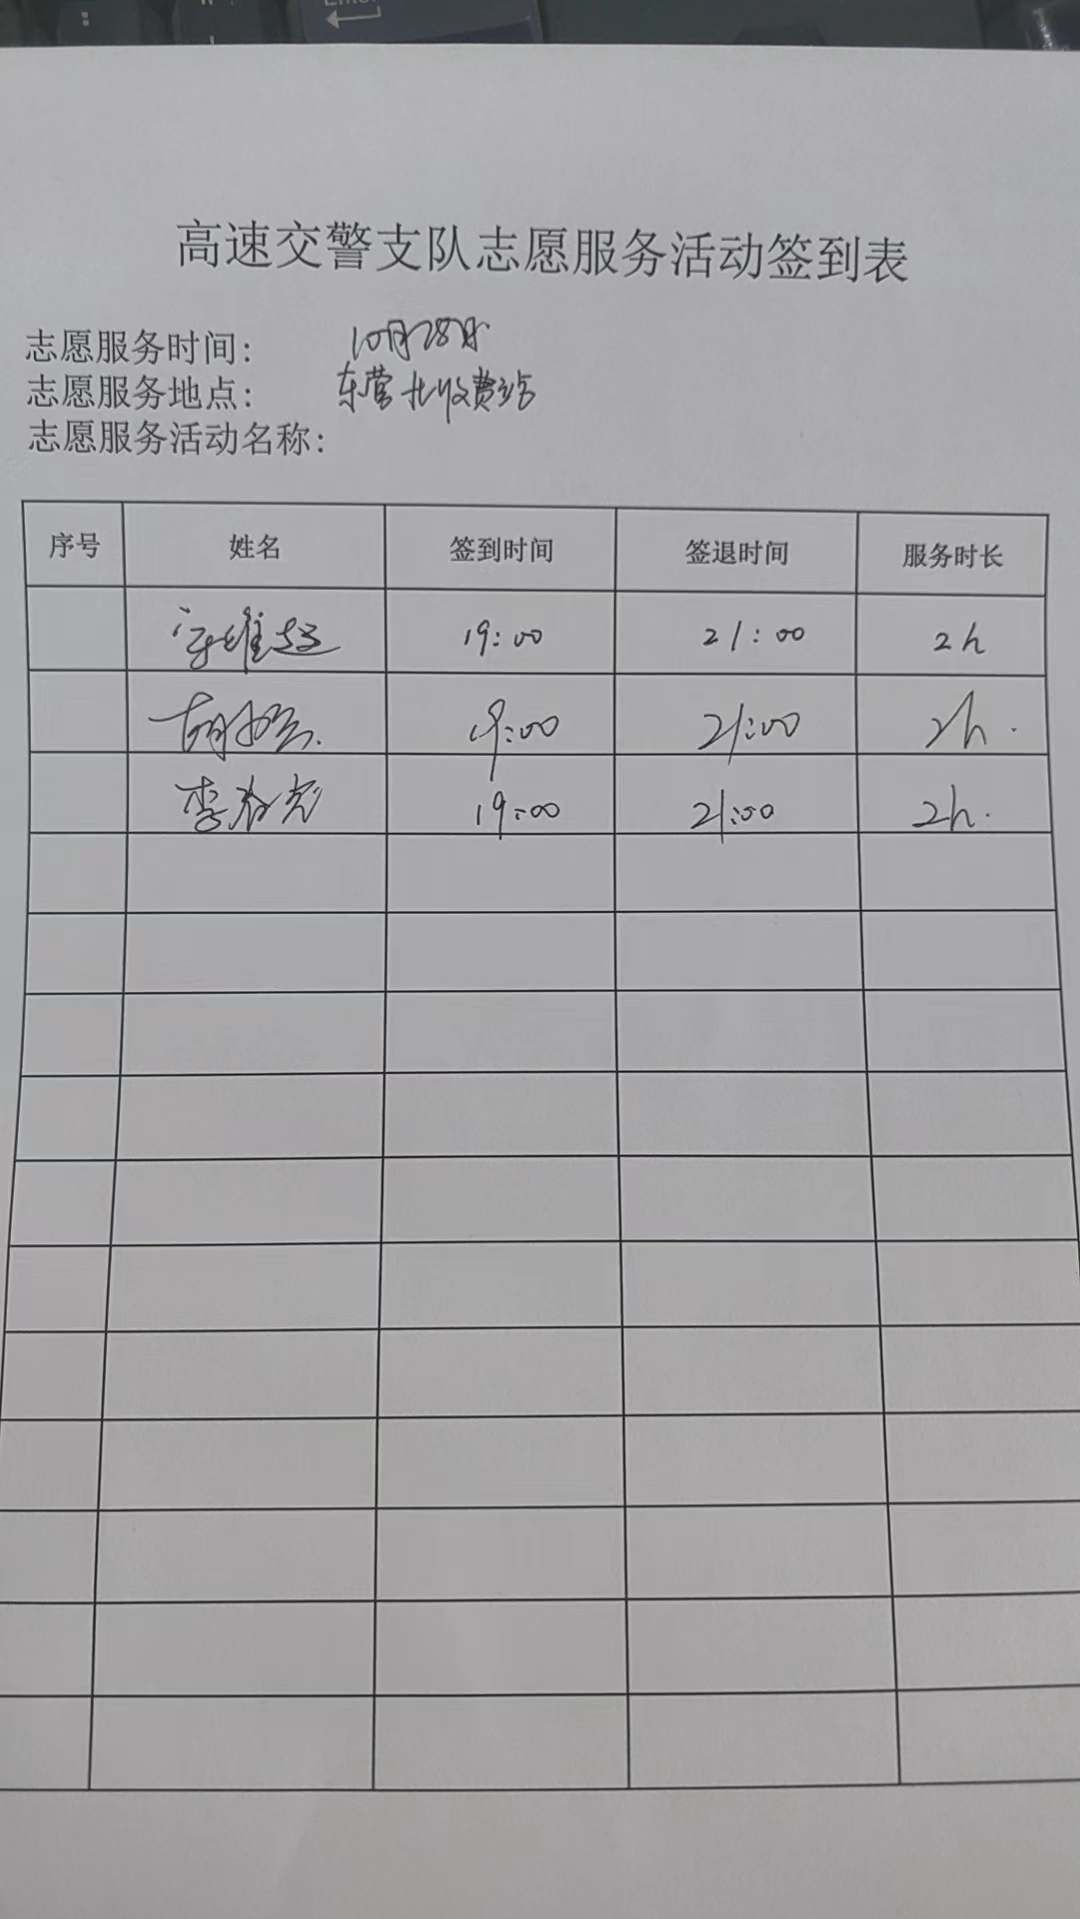 高速交警支队志愿服务活动签到表
志愿服务时间: 10月28日
志愿服务地点: 东营北收费站
志愿服务活动名称:
序号 姓名 签到时间 签退时间 服务时长
19:00 21:00 2h
19:00 21:00 2h.
李 19:00 21:00 2h.